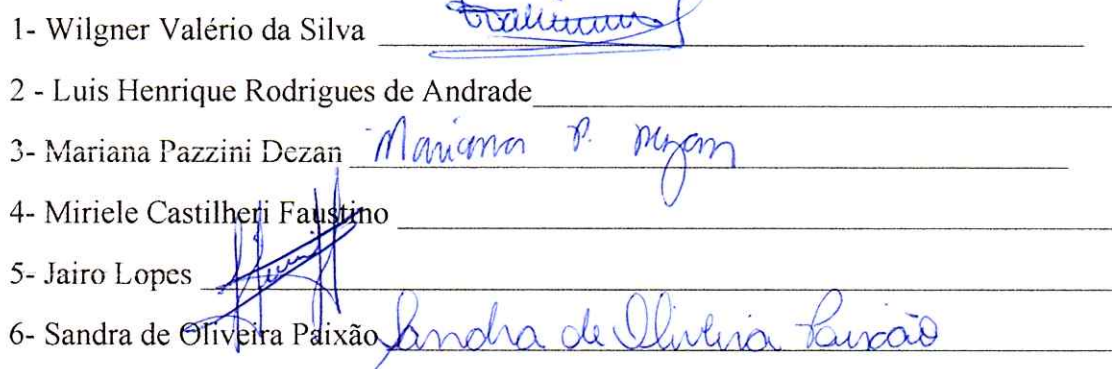 1- Wilgner Valério da Silva
2 - Luis Henrique Rodrigues de Andrade
3- Mariana Pazzini Dezan Mariana P. Dezan
4- Miriele Castilheri Faustino
5- Jairo Lopes
6- Sandra de Oliveira Paixão Sandra de Oliveira Paixão